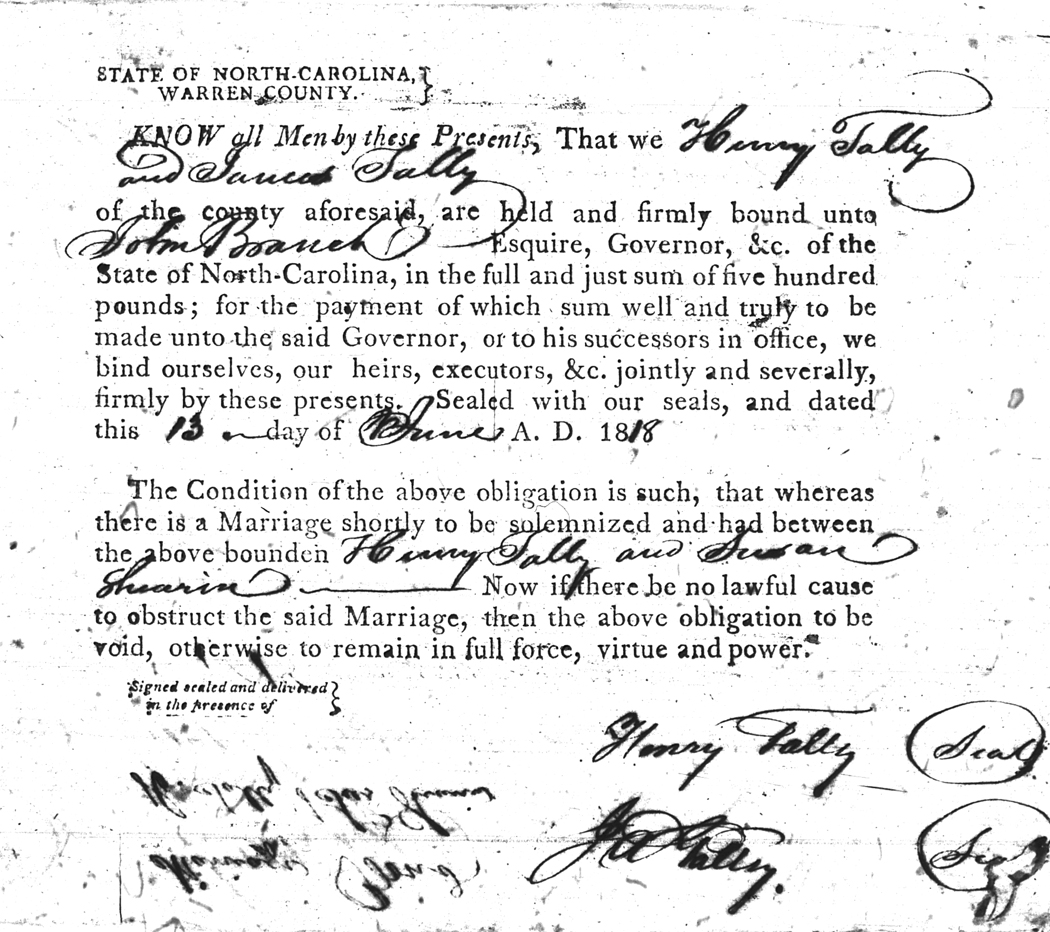 STATE OF NORTH-CAROLINA,
WARREN COUNTY.
KNOW all Men by these Presents, That we Henry Tally
and James Tally
of the county aforesaid, are held and firmly bound unto
John Branch Esquire, Governor, &c. of the
State of North-Carolina, in the full and just sum of five hundred
pounds; for the payment of which sum well and truly to be
made unto the said Governor, or to his successors in office, we
bind ourselves, our heirs, executors, &c. jointly and severally,
firmly by these presents. Sealed with our seals, and dated
this 13 day of June A. D. 1818
The Condition of the above obligation is such, that whereas
there is a Marriage shortly to be solemnized and had between
the above bounden Henry Tally and Susan
Shearin Now if there be no lawful cause
to obstruct the said Marriage, then the above obligation to be
void, otherwise to remain in full force, virtue and power.
Signed sealed and delivered
in the presence of
Henry Tally Seal
J A Talley. Seal
Marriage Bond